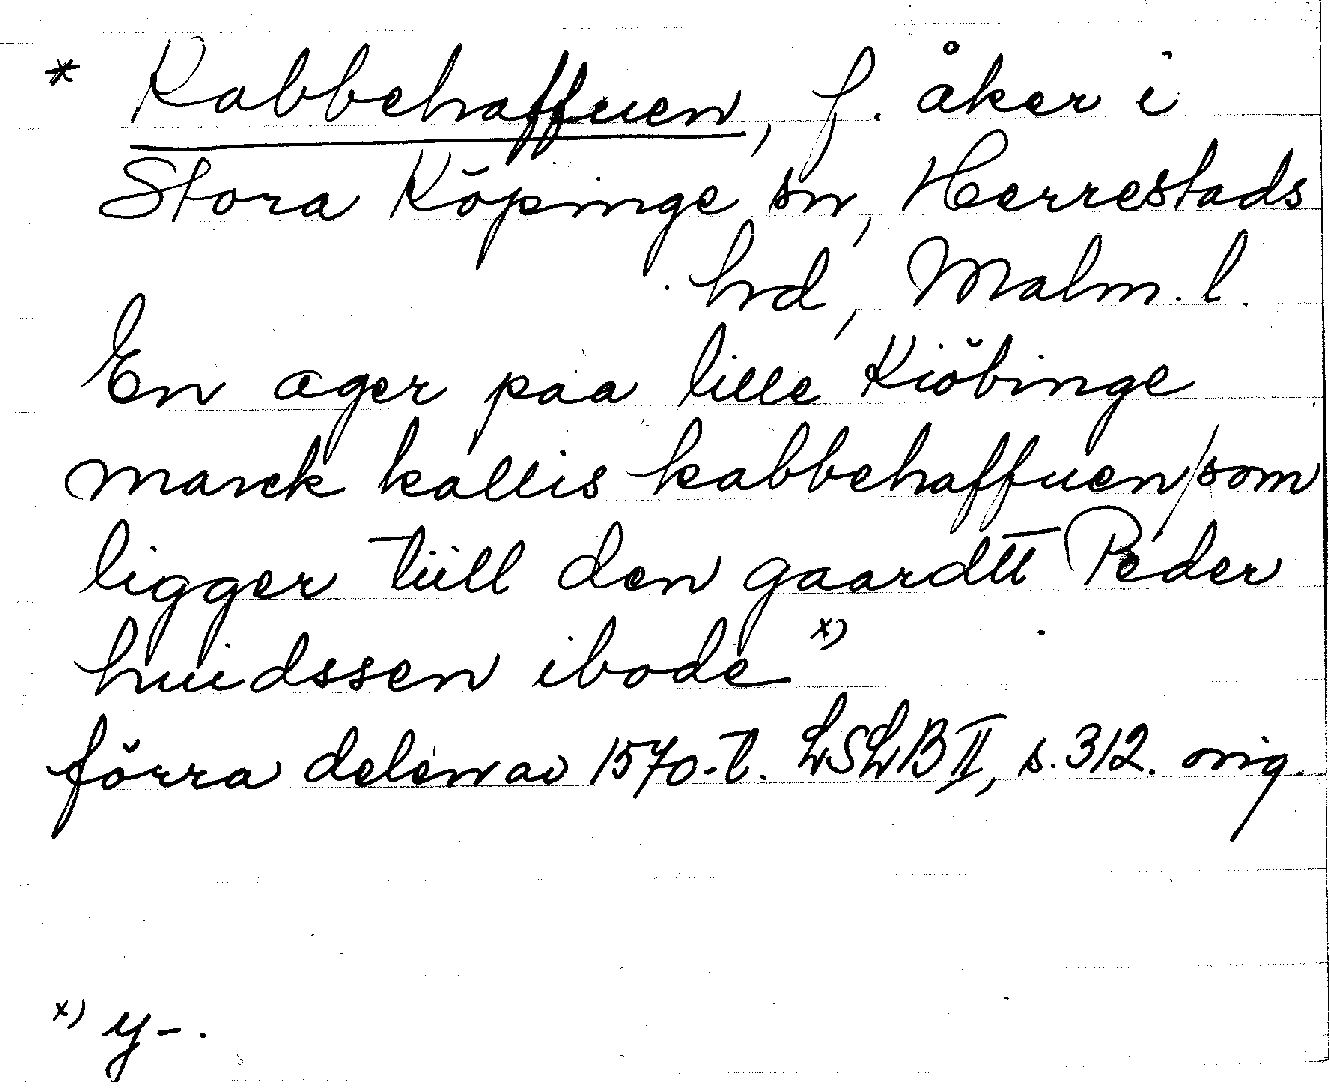 * Kabbehaffuen, f. åker i
Stora Köpinge sn, Herrestads
hrd, Malm. l.
En ager paa lille Kiöbinge
marck kallis kabbehaffuen/som
ligger tiill den gaardtt Peder
huidssen ibode x)
förra delen av 1570-t. LSLB II, s. 312. orig.
x) y-.